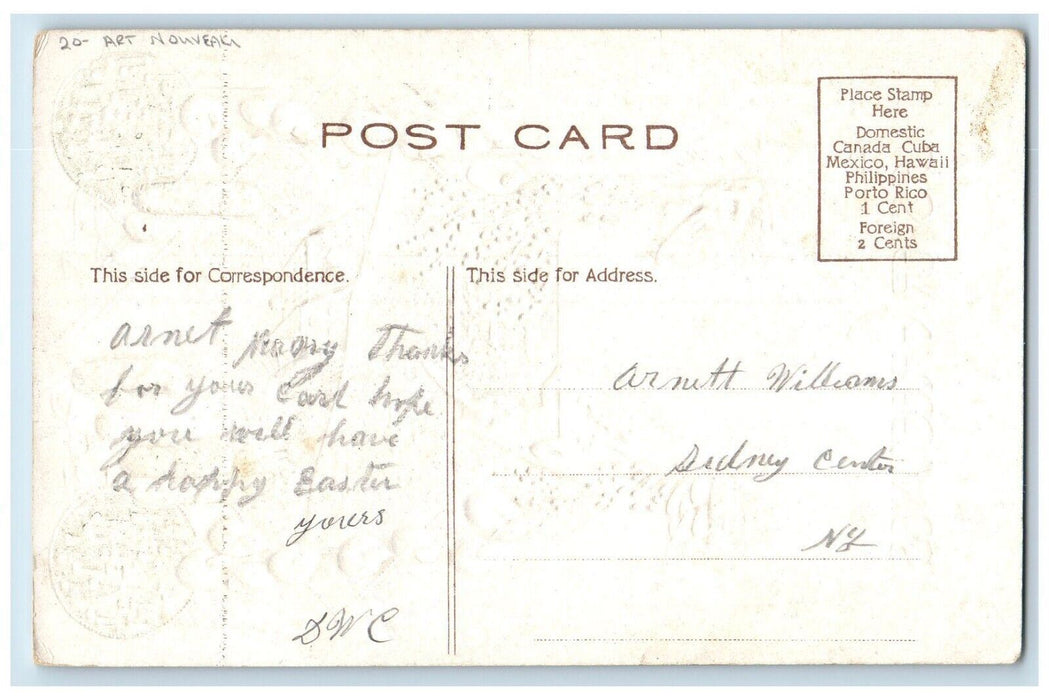 20- ART NOUVEAU
POST CARD
Place Stamp
Here
Domestic
Canada Cuba
Mexico, Hawaii
Philippines
Porto Rico
1 Cent
Foreign
2 Cents
This side for Correspondence.
This side for Address.
Arnet Many Thanks
for your Card hope
you will have
a happy Easter
yours
DWC
Arnett Williams
Sidney Center
NY